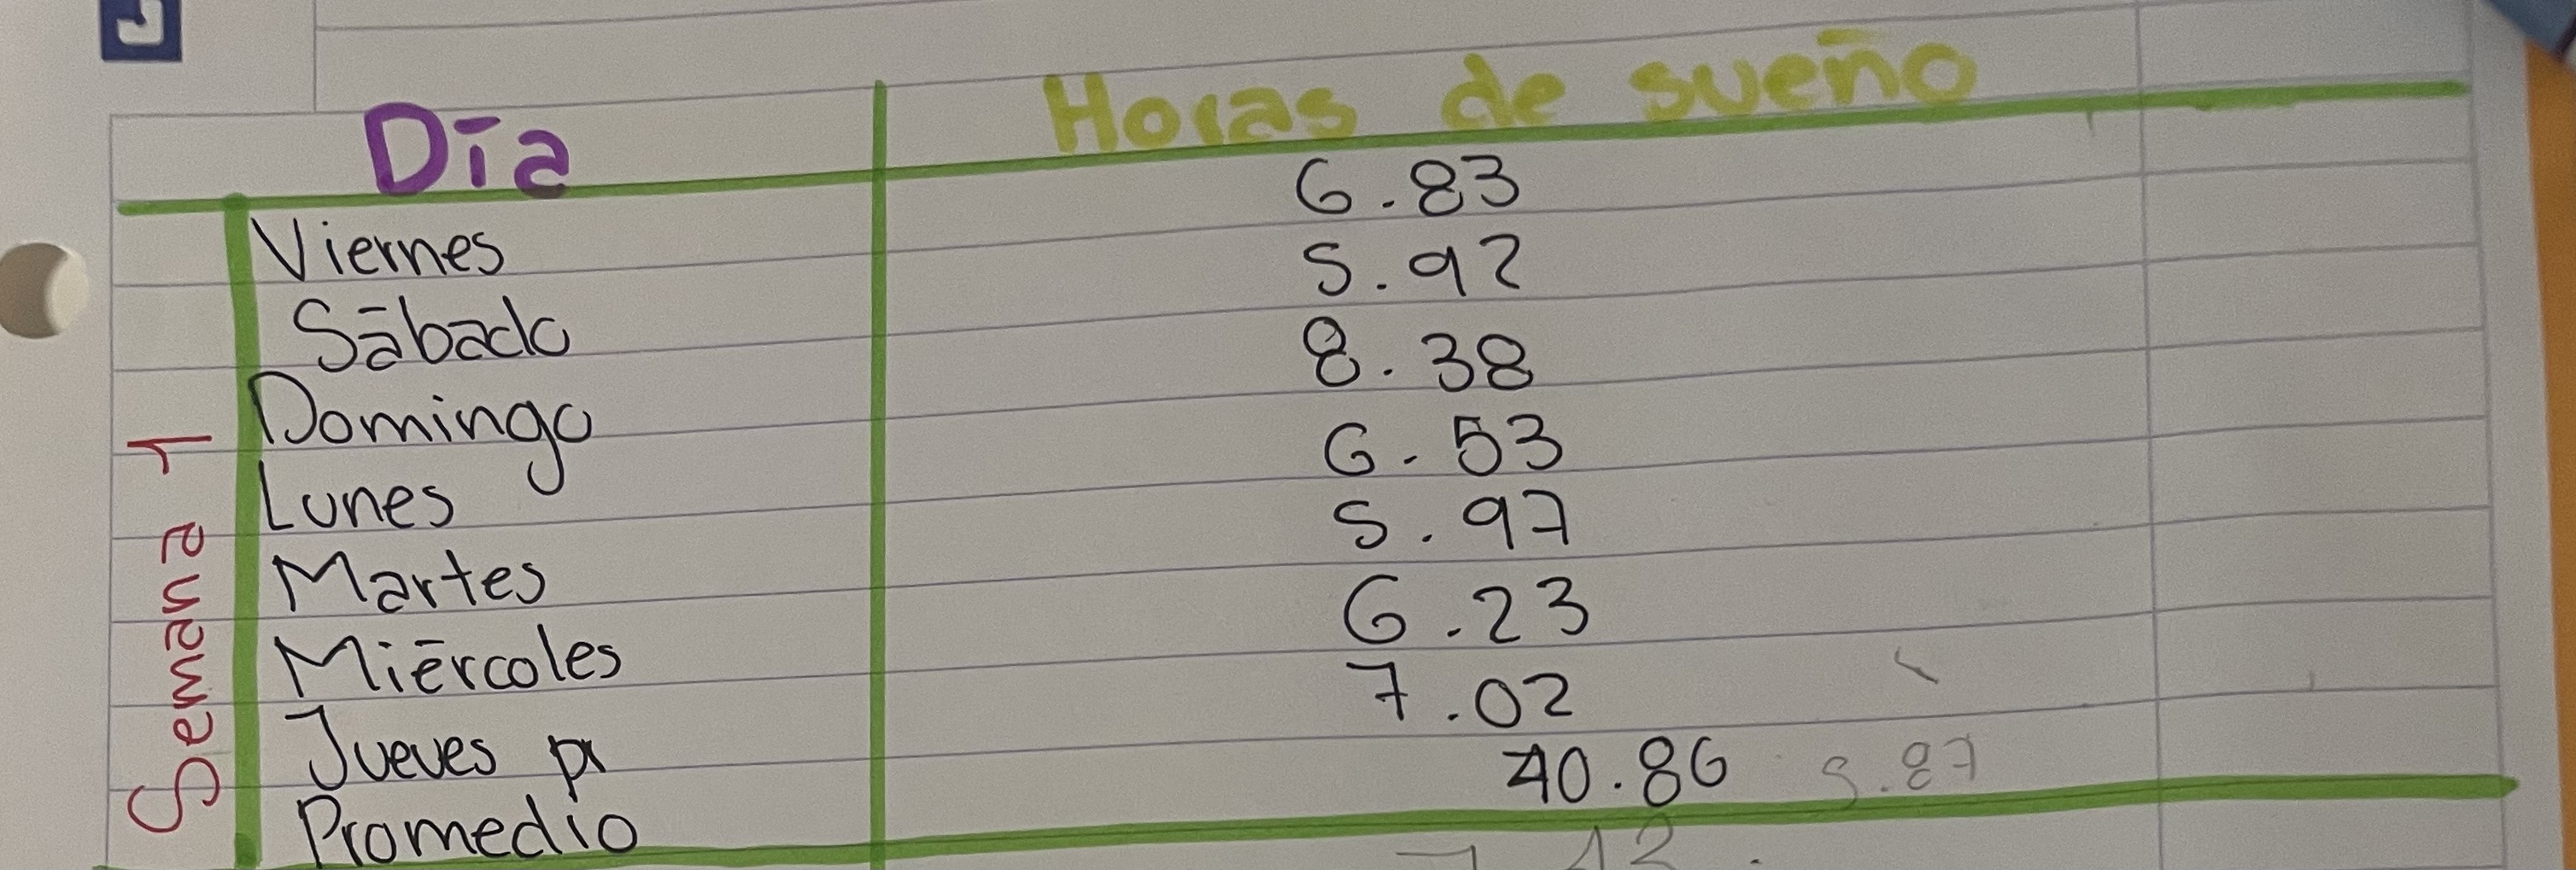 Día Horas de sueño
Semana 1
Viernes 6.83
Sábado 5.92
Domingo 8.38
Lunes 6.53
Martes 5.97
Miércoles 6.23
Jueves 7.02
Promedio 40.86 5.87